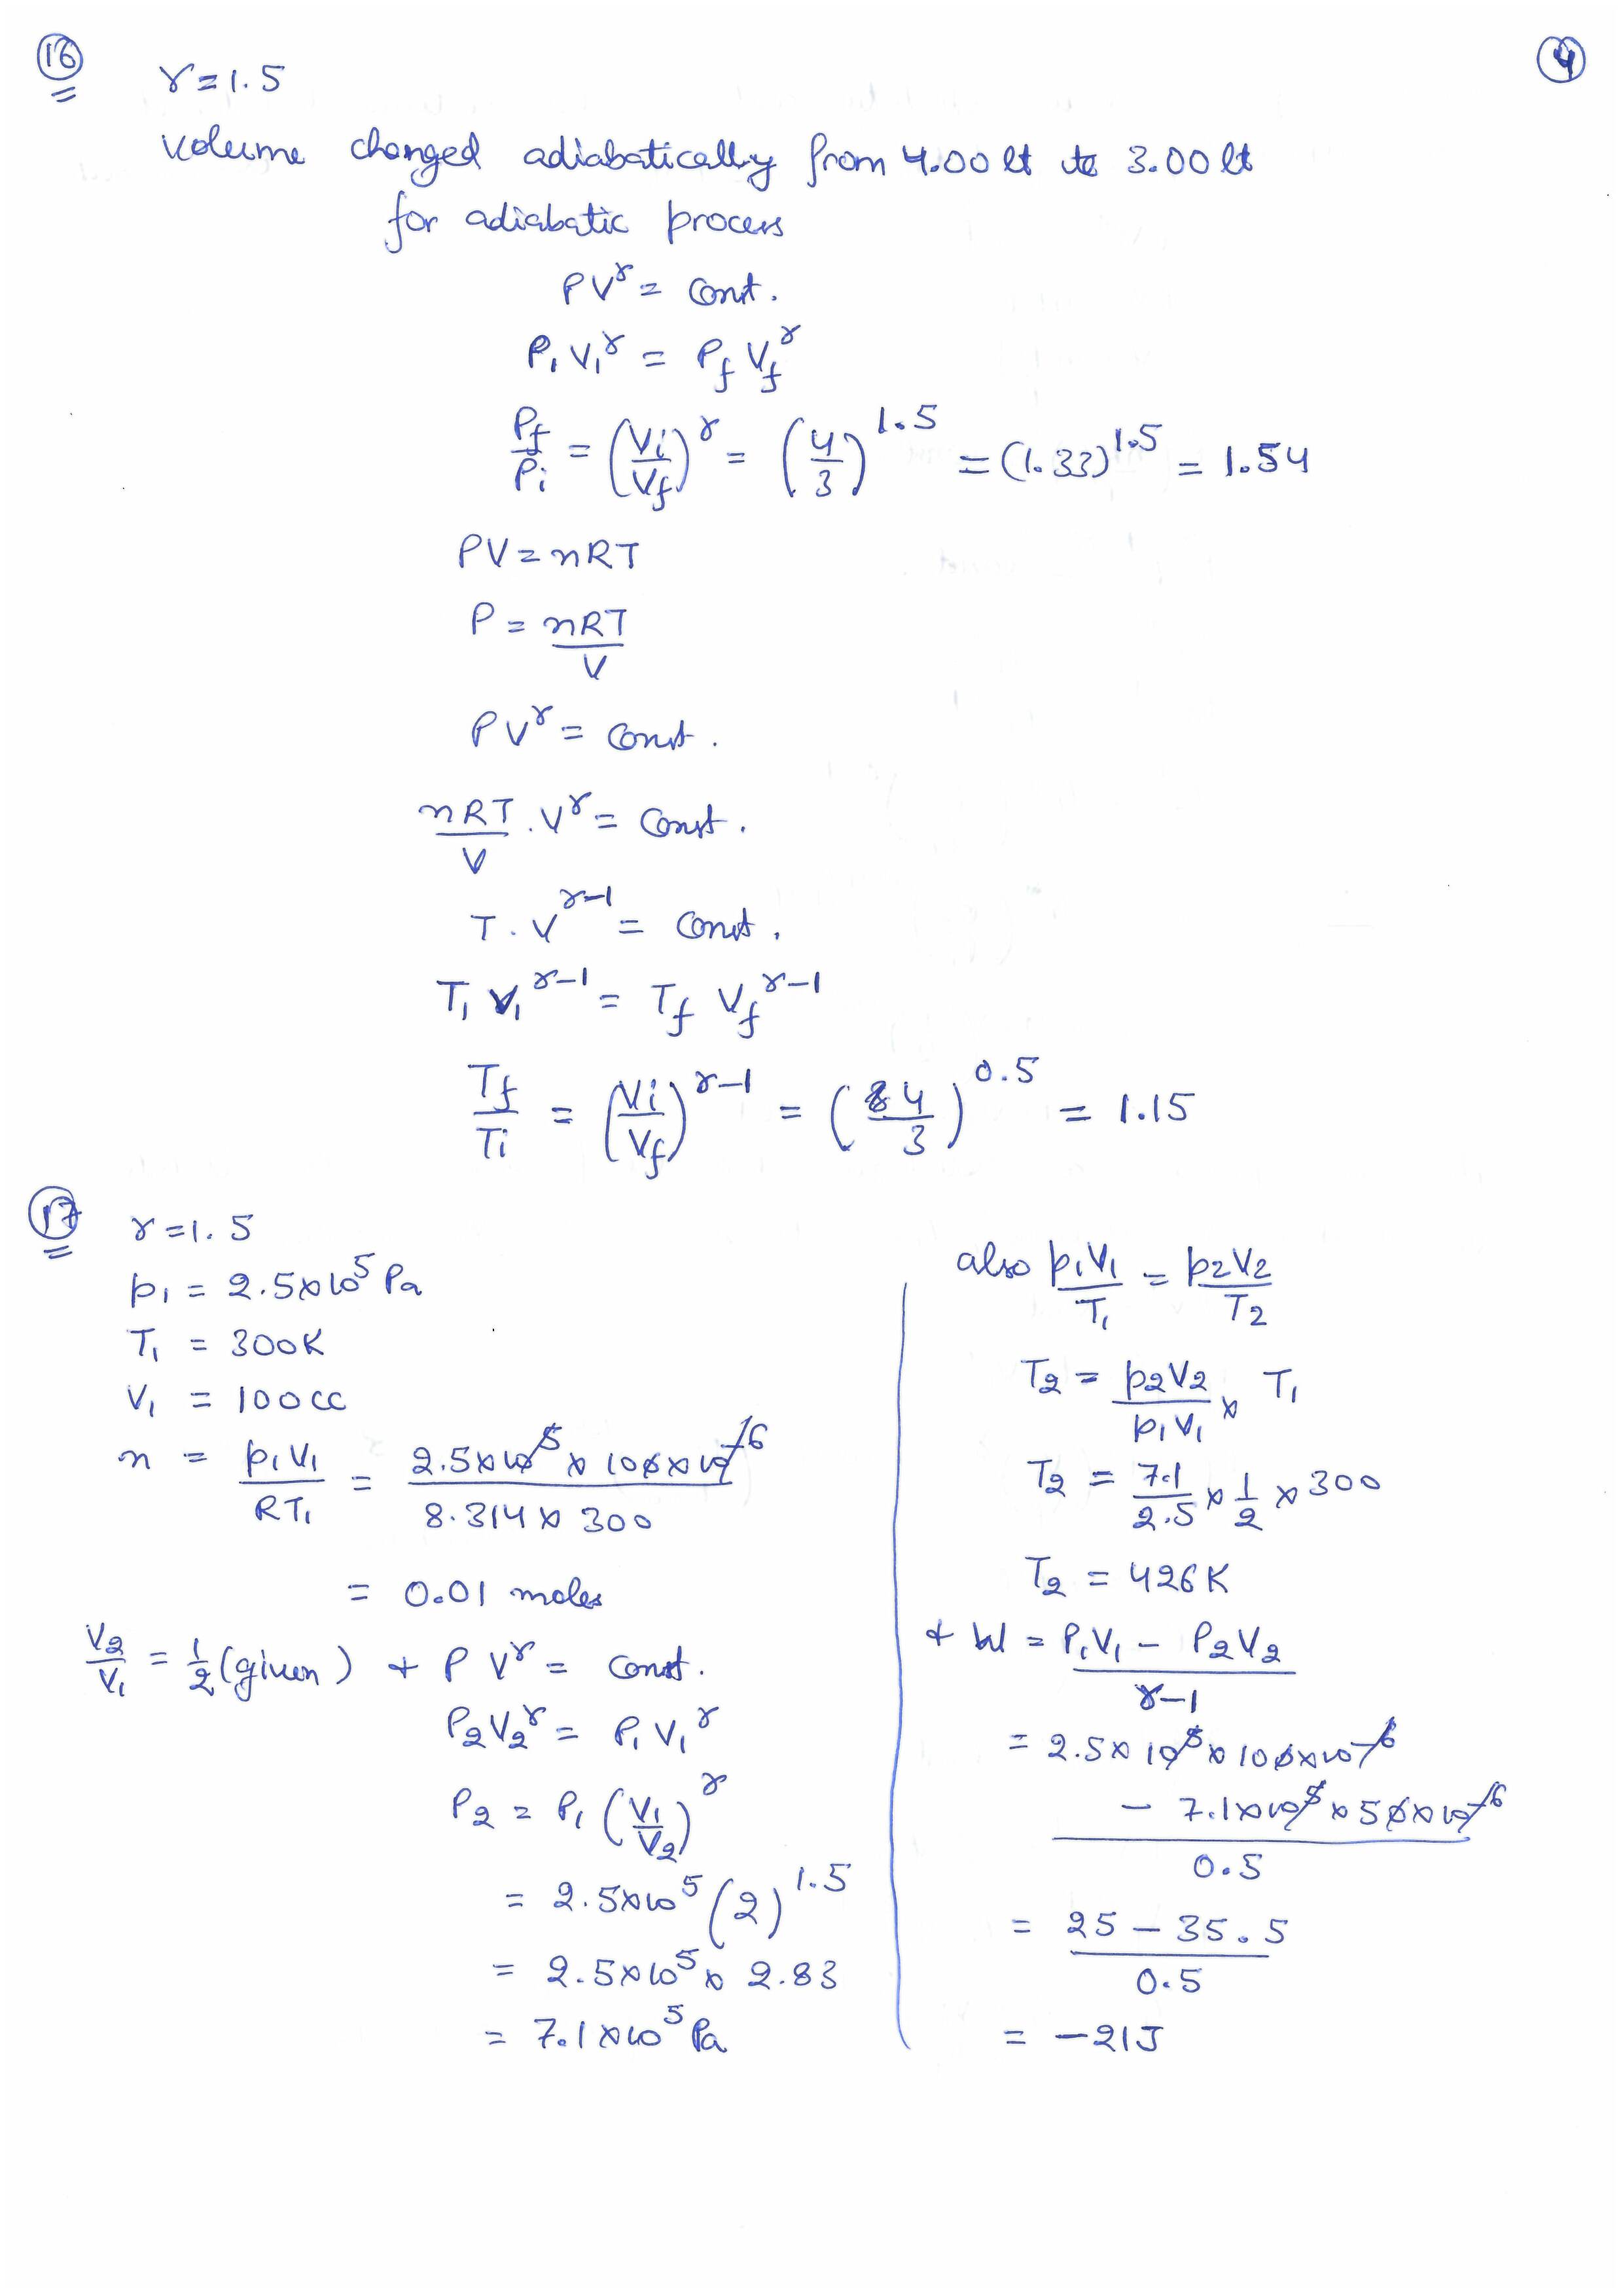 16
4
γ = 1.5
Volume changed adiabatically from 4.00 lt to 3.00 lt
for adiabatic process
PV^γ = Const.
P₁V₁^γ = P_f V_f^γ
P_f/P_i = (V_i/V_f)^γ = (4/3)^1.5 = (1.33)^1.5 = 1.54
PV = nRT
P = nRT/V
PV^γ = Const.
nRT/V . V^γ = Const.
T . V^(γ-1) = Const.
T₁ V₁^(γ-1) = T_f V_f^(γ-1)
T_f/T_i = (V_i/V_f)^(γ-1) = (4/3)^0.5 = 1.15
17
γ = 1.5
p₁ = 2.5×10⁵ Pa
T₁ = 300K
V₁ = 100cc
n = p₁V₁/RT₁ = 2.5×10⁵ × 100×10⁻⁶/8.314 × 300
= 0.01 moles
V₂/V₁ = 1/2 (given) + P V^γ = Const.
P₂V₂^γ = P₁V₁^γ
P₂ = P₁ (V₁/V₂)^γ
= 2.5×10⁵ (2)^1.5
= 2.5×10⁵ × 2.83
= 7.1×10⁵ Pa
also p₁V₁/T₁ = p₂V₂/T₂
T₂ = p₂V₂/p₁V₁ × T₁
T₂ = 7.1/2.5 × 1/2 × 300
T₂ = 426K
+ W = P₁V₁ – P₂V₂/γ-1
= 2.5× 10⁵ × 100×10⁻⁶
– 7.1×10⁵ × 50×10⁻⁶
0.5
= 25 – 35.5/0.5
= –21J